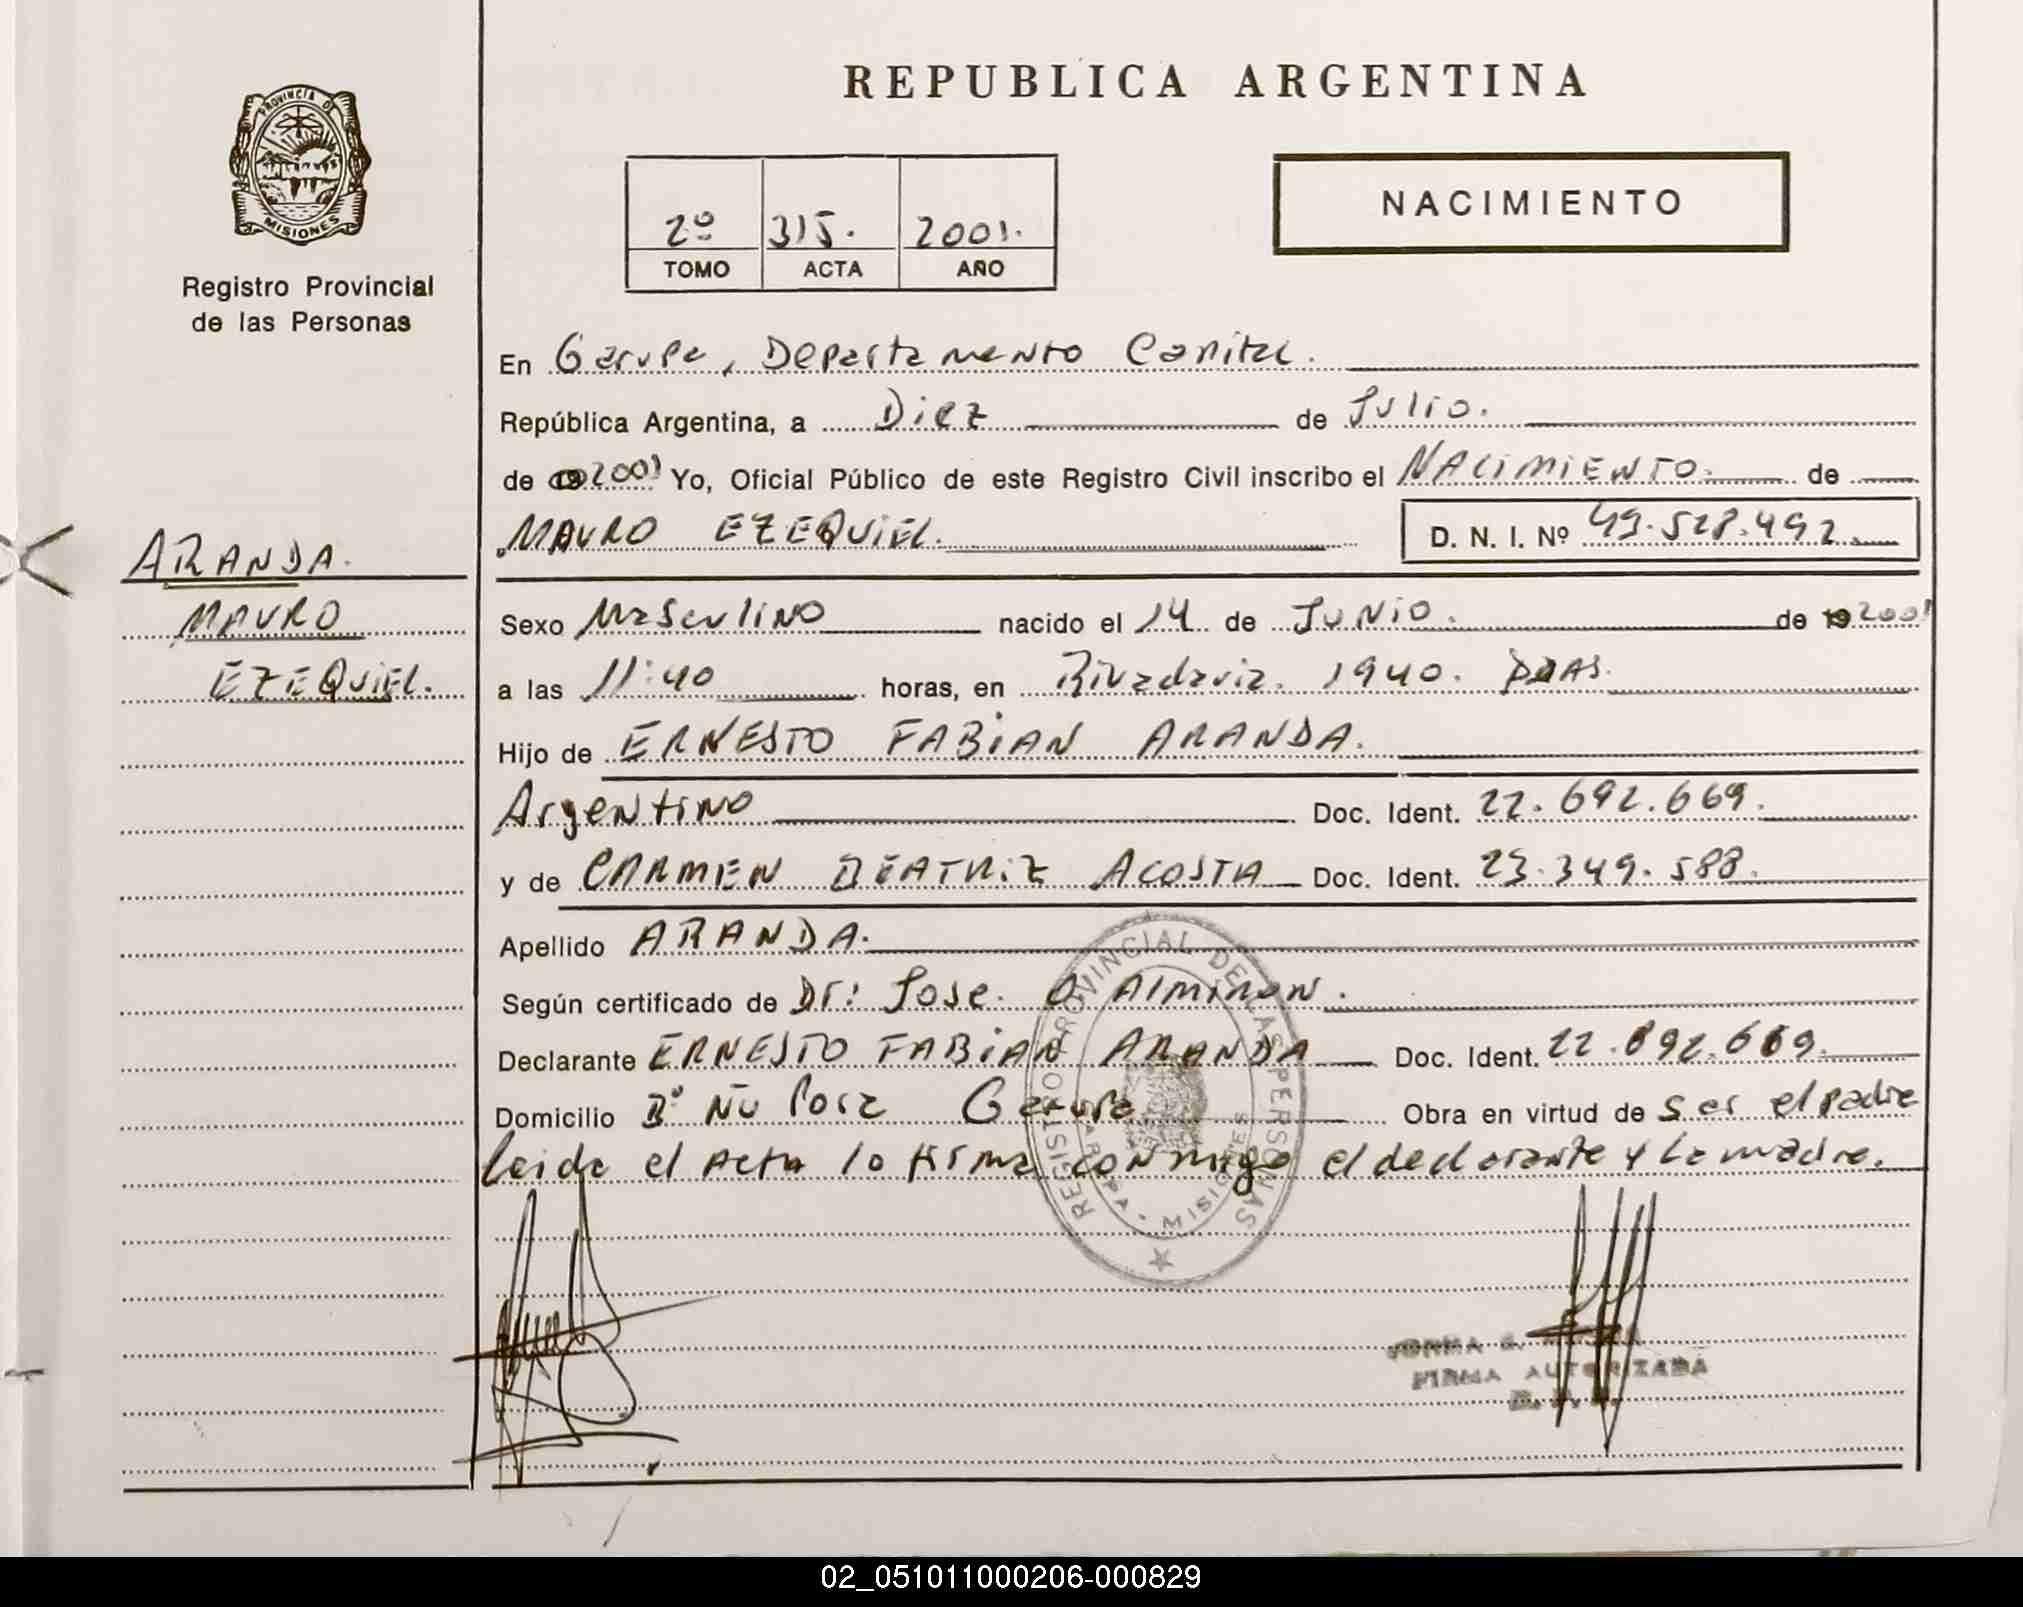 REPUBLICA ARGENTINA
PROVINCIA D
MISIONES
Registro Provincial
de las Personas
2º 315. 2001.
TOMO ACTA AÑO
NACIMIENTO
En Garupa, Departamento Capital.
República Argentina, a Diez de Julio.
de 2001 Yo, Oficial Público de este Registro Civil inscribo el NACIMIENTO. de
MAURO EZEQUIEL. D. N. I. Nº 49.528.492
ARANDA.
MAURO
EZEQUIEL.
Sexo Masculino nacido el 14 de JUNIO. de 19 2001
a las 11:40 horas, en Rivadavia. 1940. PDAS.
Hijo de ERNESTO FABIAN ARANDA.
Argentino Doc. Ident. 22.692.669.
y de CARMEN BEATRIZ ACOSTA Doc. Ident. 23.349.588.
Apellido ARANDA.
Según certificado de Dr: Jose. O Almiron.
Declarante ERNESTO FABIAN ARANDA Doc. Ident. 22.692.669.
Domicilio Bº Ñu Pora Garupa Obra en virtud de Ser el padre
leida el Acta lo firma conmigo el declarante y la madre.
REGISTRO PROVINCIAL DE LAS PERSONAS
GARUPA - MISIONES
NORMA
FIRMA AUTORIZADA
02_051011000206-000829